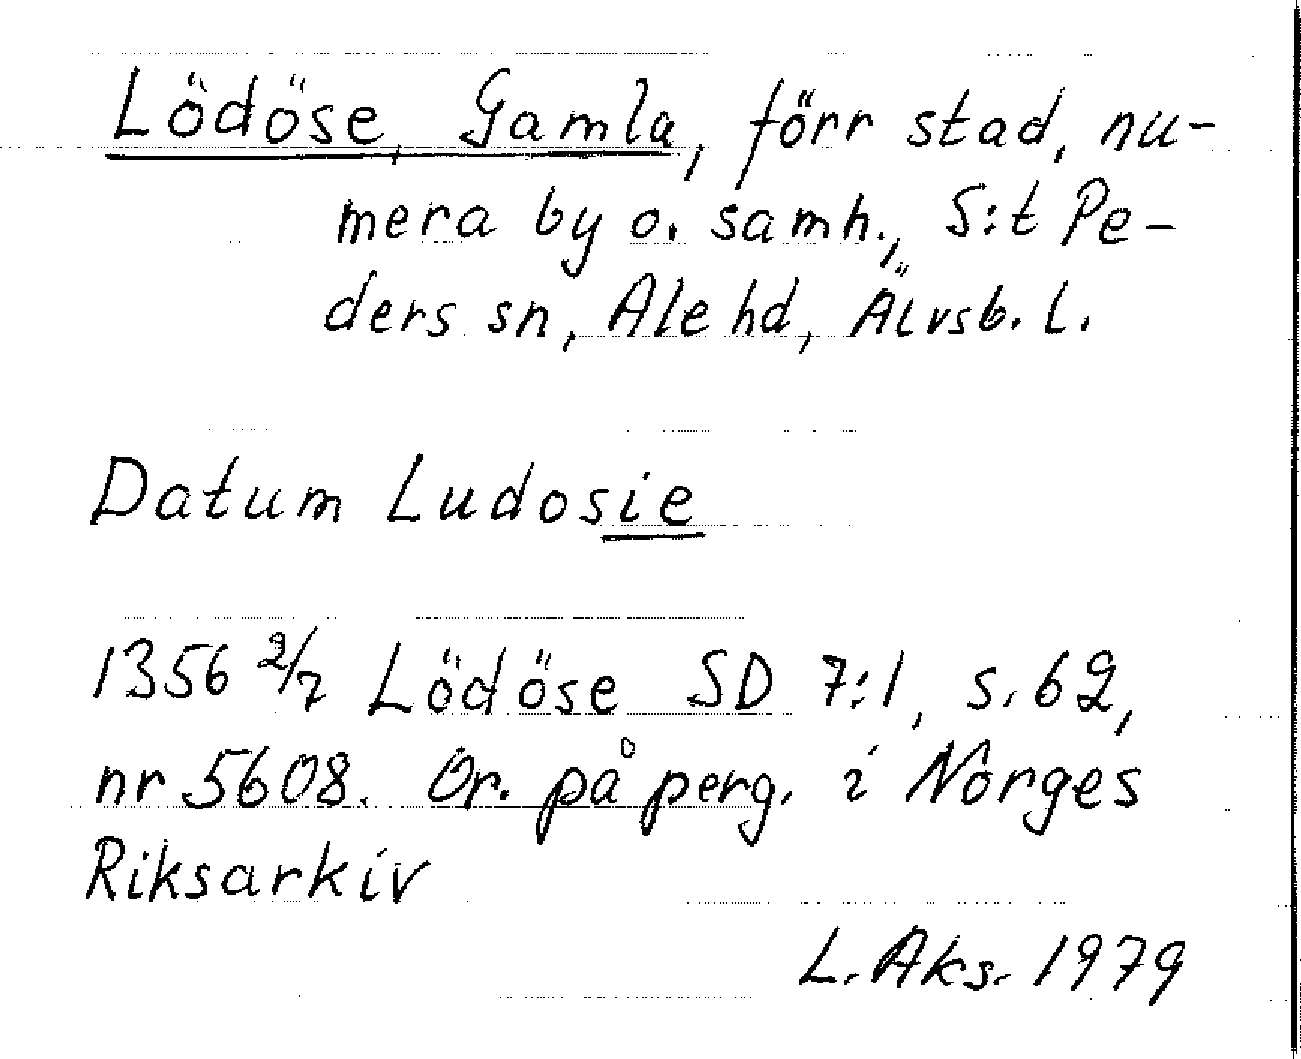 Lödöse, Gamla, förr stad, nu-
mera by o. samh., S:t Pe-
ders sn, Ale hd, Älvsb. l.
Datum Ludosie
1356 2/7 Lödöse SD 7:1, s. 62,
nr 5608. Or. på perg. i Norges
Riksarkiv
L. Aks. 1979